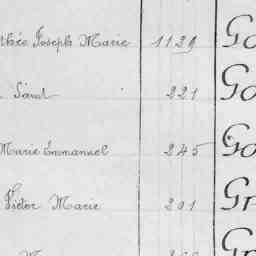 thée Joseph Marie 1129 Go
221 Go
Marie Emmanuel 245 Go
Victor Marie 201 Gr